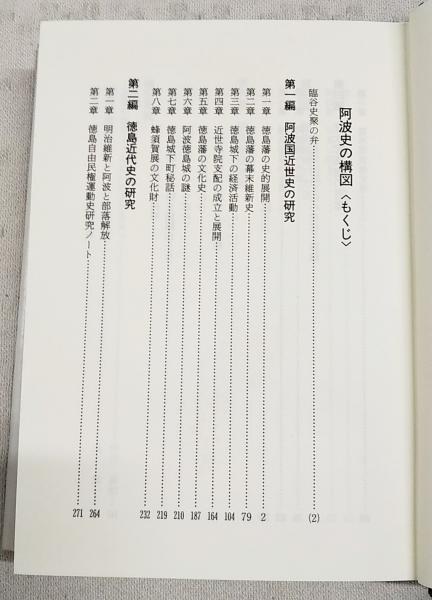 阿波史の構図〈もくじ〉
臨谷史聚の弁……(2)
第一編 阿波国近世史の研究
第一章 徳島藩の史的展開……2
第二章 徳島藩の幕末維新史……79
第三章 徳島城下の経済活動……104
第四章 近世寺院支配の成立と展開……164
第五章 徳島藩の文化史……187
第六章 阿波徳島城の謎……210
第七章 徳島城下町秘話……219
第八章 蜂須賀展の文化財……232
第二編 徳島近代史の研究
第一章 明治維新と阿波と部落解放……264
第二章 徳島自由民権運動史研究ノート……271